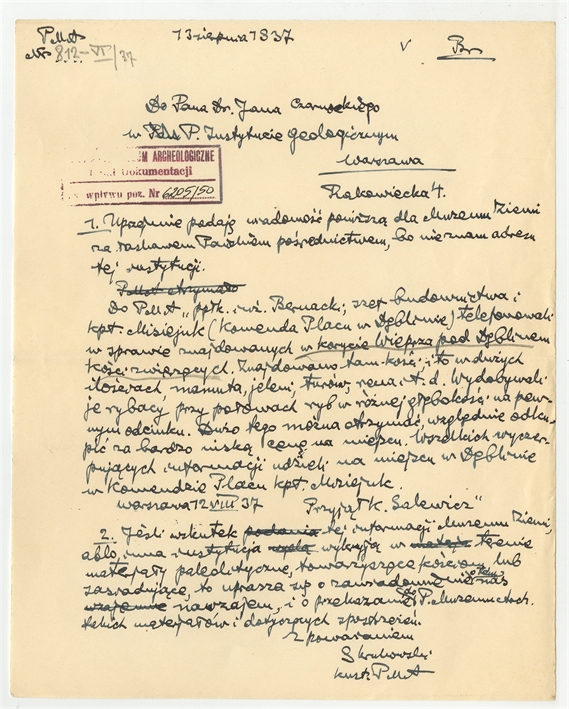 PMA 13 sierpnia 1937 v
Nr 812-VI/37
Do Pana Dr. Jana Czarnockiego
w P. Instytucie geologicznym
Warszawa
Rakowiecka 4.
EM ARCHEOLOGICZNE
Dokumentacji
wpływu poz. Nr 6205/50
1. Uprzejmie podaję wiadomość poniższą dla Muzeum Ziemi
za łaskawem Pańskiem pośrednictwem, bo nie znam adresu
tej instytucji.
PMA otrzymało
Do PMA "ppłk. Bernacki, szef budownictwa i
kpt. Misiejuk (Komenda Placu w Dęblinie) telefonowali
w sprawie znajdowanych w korycie Wieprza pod Dęblinem
kości zwierzęcych. Znajdowano tam kości, i to w dużych
ilościach, mamuta, jeleni, turów, rena i t. d. Wydobywali
je rybacy przy połowach ryb w różnej głębokości na pew-
nym odcinku. Dużo tego można otrzymać, względnie odku-
pić za bardzo niską cenę na miejscu. Wszelkich wyczer-
pujących informacji udzieli na miejscu w Dęblinie
w Komendzie Placu kpt. Misiejuk.
Warszawa 12 VIII 37 Przyjął K. Salewicz"
2. Jeśli wskutek podania tej informacji Muzeum Ziemi,
albo inna instytucja wykryją w terenie
materjały paleolityczne, towarzyszące kościom, lub
zasadniające, to uprasza się o zawiadomienie o tem nas
wzajemnie nawzajem, i o przekazanie do P. Muzeum Arch.
takich materjałów i dotyczących spostrzeżeń.
Z poważaniem
S Krukowski
kust. PMA